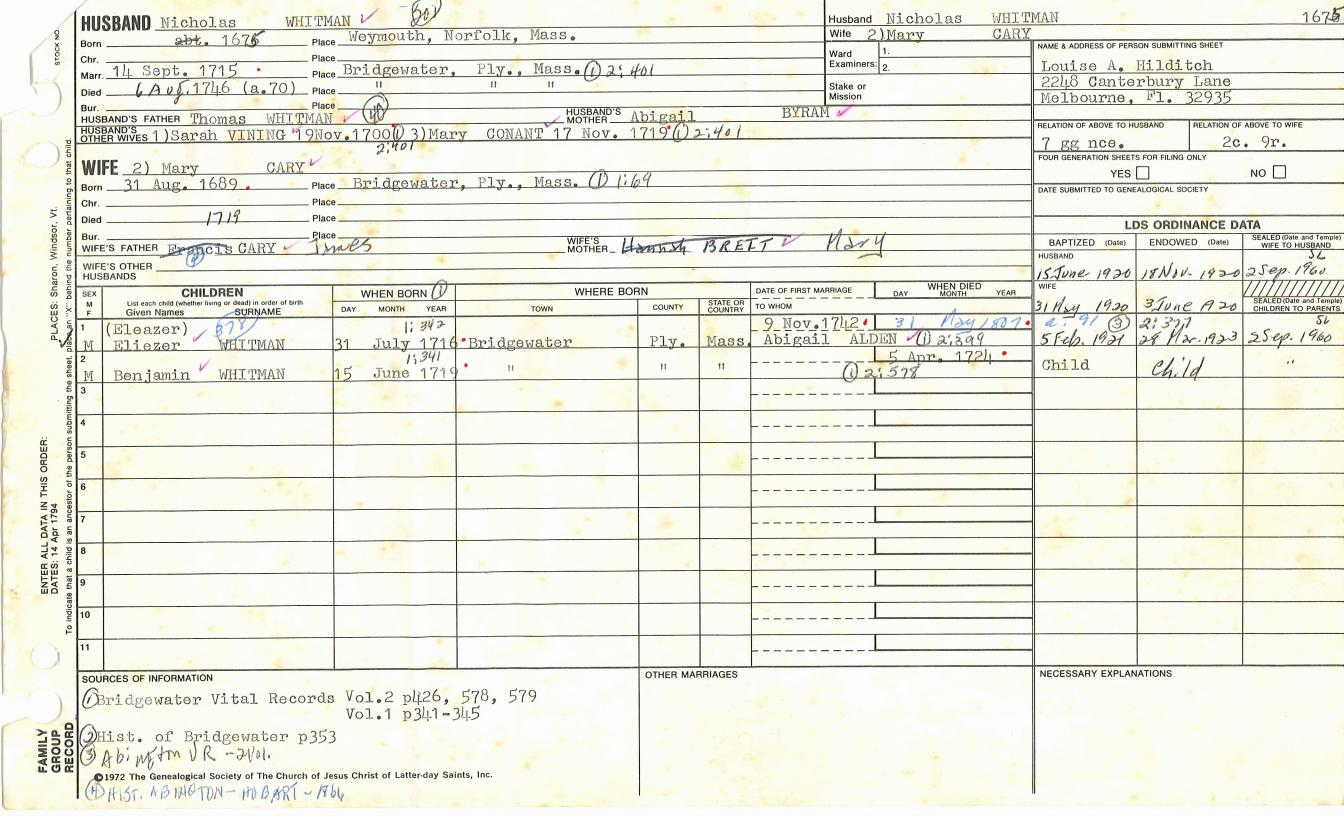 HUSBAND Nicholas WHITMAN ✓
Born abt. 1675 Place Weymouth, Norfolk, Mass.
Chr. Place
Marr. 14 Sept. 1715 Place Bridgewater, Ply., Mass. ① 2:401
Died 6 Aug. 1746 (a.70) Place " " "
Bur. Place
HUSBAND'S FATHER Thomas WHITMAN ✓ HUSBAND'S MOTHER Abigail BYRAM ✓
HUSBAND'S OTHER WIVES 1)Sarah VINING 19Nov.1700① 3)Mary CONANT 17 Nov. 1719① 2:401
2:401
WIFE 2) Mary CARY ✓
Born 31 Aug. 1689. Place Bridgewater, Ply., Mass. ① 1:69
Chr. Place
Died 1719 Place
Bur. Place
WIFE'S FATHER Francis CARY ✓ James WIFE'S MOTHER Hannah BRETT ✓ Mary
WIFE'S OTHER HUSBANDS
Husband Nicholas WHITMAN 1675
Wife 2)Mary CARY
Ward Examiners: 1.
2.
Stake or Mission
NAME & ADDRESS OF PERSON SUBMITTING SHEET
Louise A. Hilditch
2248 Canterbury Lane
Melbourne, Fl. 32935
RELATION OF ABOVE TO HUSBAND RELATION OF ABOVE TO WIFE
7 gg nce. 2c. 9r.
FOUR GENERATION SHEETS FOR FILING ONLY
YES NO
DATE SUBMITTED TO GENEALOGICAL SOCIETY
LDS ORDINANCE DATA
BAPTIZED (Date) ENDOWED (Date) SEALED (Date and Temple) WIFE TO HUSBAND
HUSBAND SL
15 June 1920 18 Nov. 1920 2 Sep. 1960
WIFE
31 May 1920 3 June 1920 SEALED (Date and Temple) CHILDREN TO PARENTS
SEX M F CHILDREN List each child (whether living or dead) in order of birth Given Names SURNAME WHEN BORN ① DAY MONTH YEAR WHERE BORN TOWN COUNTY STATE OR COUNTRY DATE OF FIRST MARRIAGE TO WHOM WHEN DIED DAY MONTH YEAR
1 (Eleazer) 378 1:342 9 Nov.1742 31 May 1807 a: 91 ③ 2:377 SL
M Eliezer WHITMAN 31 July 1716 Bridgewater Ply. Mass. Abigail ALDEN ✓ ① 2:399 5 Feb. 1921 28 Mar. 1923 2 Sep. 1960
2 1:341 5 Apr. 1724
M Benjamin WHITMAN 15 June 1719 " " " ① 2:578 Child Child "
3
4
5
6
7
8
9
10
11
SOURCES OF INFORMATION
① Bridgewater Vital Records Vol.2 p426, 578, 579
Vol.1 p341-345
② Hist. of Bridgewater p353
③ Abington VR - 2Vol.
©1972 The Genealogical Society of The Church of Jesus Christ of Latter-day Saints, Inc.
④ HIST. ABINGTON - HOBART - 1866
OTHER MARRIAGES
NECESSARY EXPLANATIONS
STOCK NO.
PLACES: Sharon, Windsor, Vt.
ENTER ALL DATA IN THIS ORDER:
DATES: 14 Apr 1794
To indicate that a child is an ancestor of the person submitting the sheet, place an "X" behind the number pertaining to that child.
FAMILY GROUP RECORD